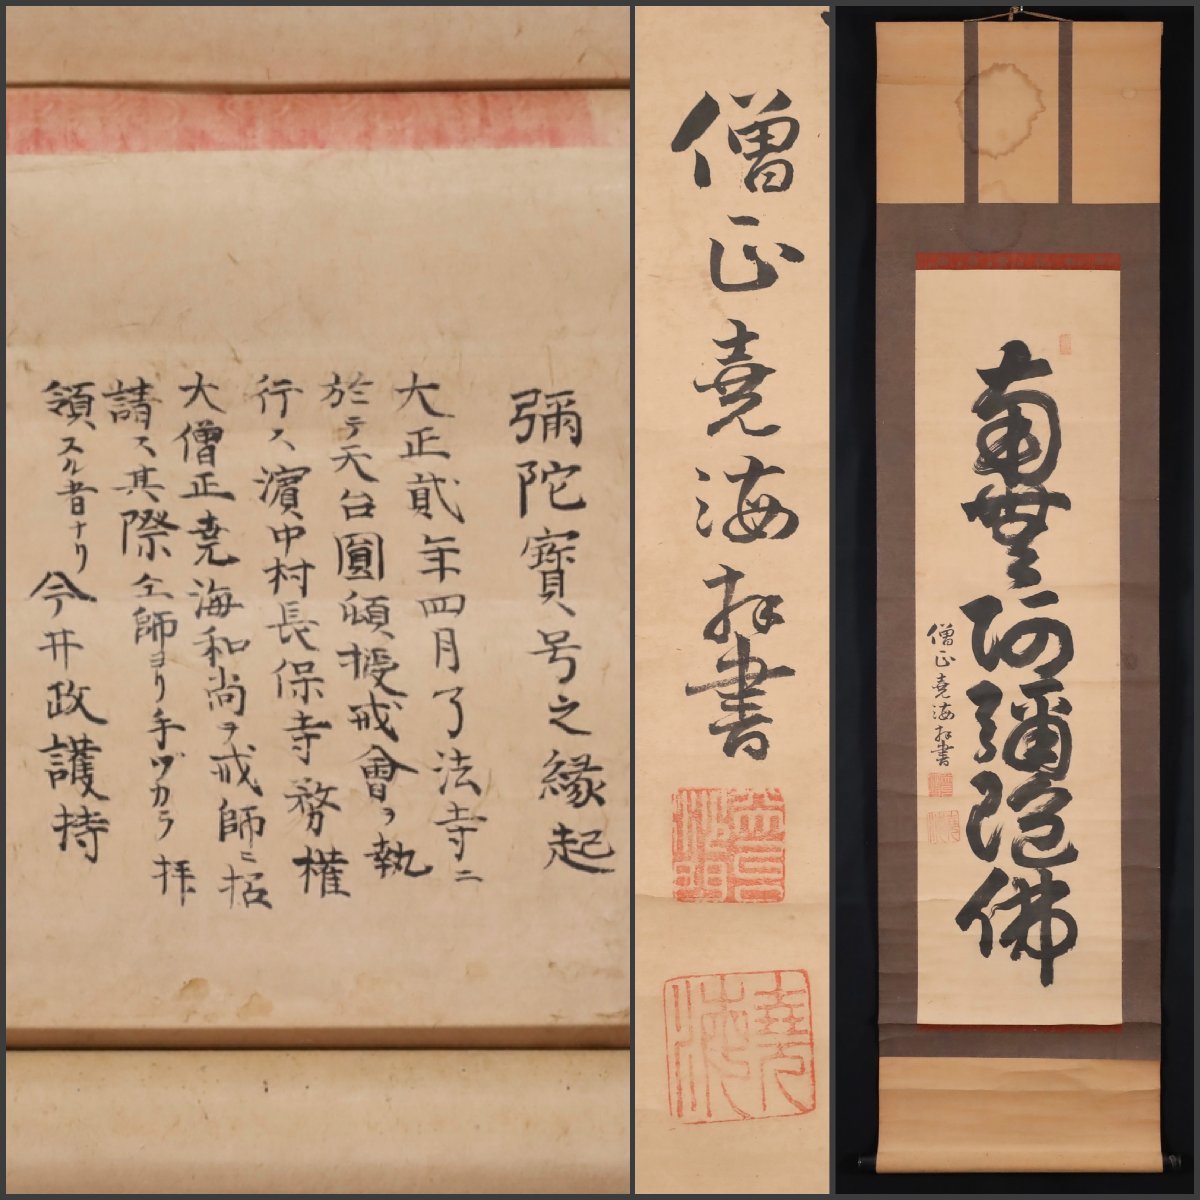 彌陀寳号之縁起
大正貮年四月了法寺ニ
於テ天台圓頓授戒會ヲ執
行ス濱中村長保寺務權
大僧正堯海和尚ヲ戒師ニ招
請ス其際仝師ヨリ手ヅカラ拝
領スル者ナリ 今井政護持
僧正堯海拝書
堯海
南無阿彌陀佛
僧正堯海拝書